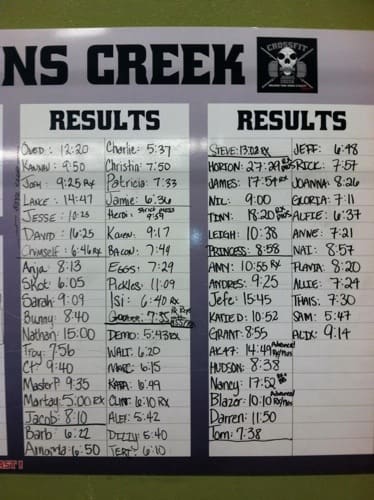 NS CREEK
CROSSFIT
RESULTS
OVED: 12:20
KANNAN: 9:50
JOSH: 9:25 RX
LANCE: 14:47
JESSE: 10:23
DAVID: 16:25
Chimself: 6:46 RX
Anja 8:13
SKot: 6:05
Sarah 9:09
Bunny 8:40
Nathan 15:00
Troy 7:56
CF 9:40
MasterP 9:35
5:00 RX
Jacob: 8:10
Barb: 6:22
Amanda: 6:50
Charlie: 5:37
Christin: 7:50
Patricia: 7:33
Jamie: 6:36
Heidi:
Karen: 9:17
BACON: 7:49
EGGS: 7:29
Pickles: 11:09
Isi: 6:40 RX
Goober: 7:35
DEMO: 5:43 RX
WALT: 6:20
MARC: 6:15
KARA: 6:49
CLINT: 6:10 RX
ALEF: 5:42
DIZZY: 5:40
TERI: 6:10
RESULTS
STEVE: 13:02 RX
HORTON: 27:29
JAMES: 17:54 RX
NIL: 9:00
TINY: 18:20
LEIGH: 10:38
PRINCESS: 8:58
AMY: 10:55 RX
ANDRES: 9:25
Jefe: 15:45
KATIE D: 10:52
GRANT: 8:55
AK47: 14:49 Advanced
HUDSON: 8:38
Nancy: 17:52
Blazor: 10:10 Advanced
Darren: 11:50
Tom: 7:38
JEFF: 6:48
RICK: 7:57
JOANNA: 8:26
GLORIA: 7:11
ALFIE: 6:37
ANNE: 7:21
NAI: 8:57
FLAVIA: 8:20
ALLIE: 7:24
THAIS: 7:30
SAM: 5:47
ALIX: 9:14